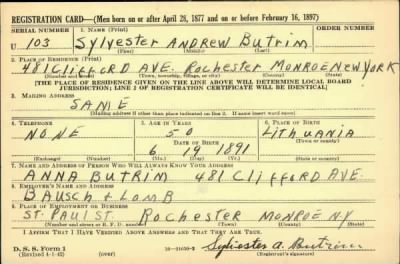 REGISTRATION CARD—(Men born on or after April 28, 1877 and on or before February 16, 1897)
SERIAL NUMBER 1. NAME (Print) ORDER NUMBER
U 103 Sylvester ANDREW Butrim
2. PLACE OF RESIDENCE (Print)
481 Clifford AVE. Rochester MONROE NEW YORK
(Number and street) (Town, township, village, or city) (County) (State)
[THE PLACE OF RESIDENCE GIVEN ON THE LINE ABOVE WILL DETERMINE LOCAL BOARD
JURISDICTION; LINE 2 OF REGISTRATION CERTIFICATE WILL BE IDENTICAL]
3. MAILING ADDRESS
SAME
[Mailing address if other than place indicated on line 2. If same insert word same]
4. TELEPHONE 5. AGE IN YEARS 6. PLACE OF BIRTH
NONE 50 Lithuania
DATE OF BIRTH (Town or county)
6 19 1891
(Exchange) (Number) (Mo.) (Day) (Yr.) (State or country)
7. NAME AND ADDRESS OF PERSON WHO WILL ALWAYS KNOW YOUR ADDRESS
ANNA BUTRIM 481 Clifford AVE.
8. EMPLOYER'S NAME AND ADDRESS
BAUSCH + LOMB
9. PLACE OF EMPLOYMENT OR BUSINESS
ST. PAUL ST. Rochester MONROE N.Y.
(Number and street or R. F. D. number) (Town) (County) (State)
I AFFIRM THAT I HAVE VERIFIED ABOVE ANSWERS AND THAT THEY ARE TRUE.
D. S. S. Form 1
(Revised 4-1-42) (over) Sylvester A. Butrim
(Registrant's signature)